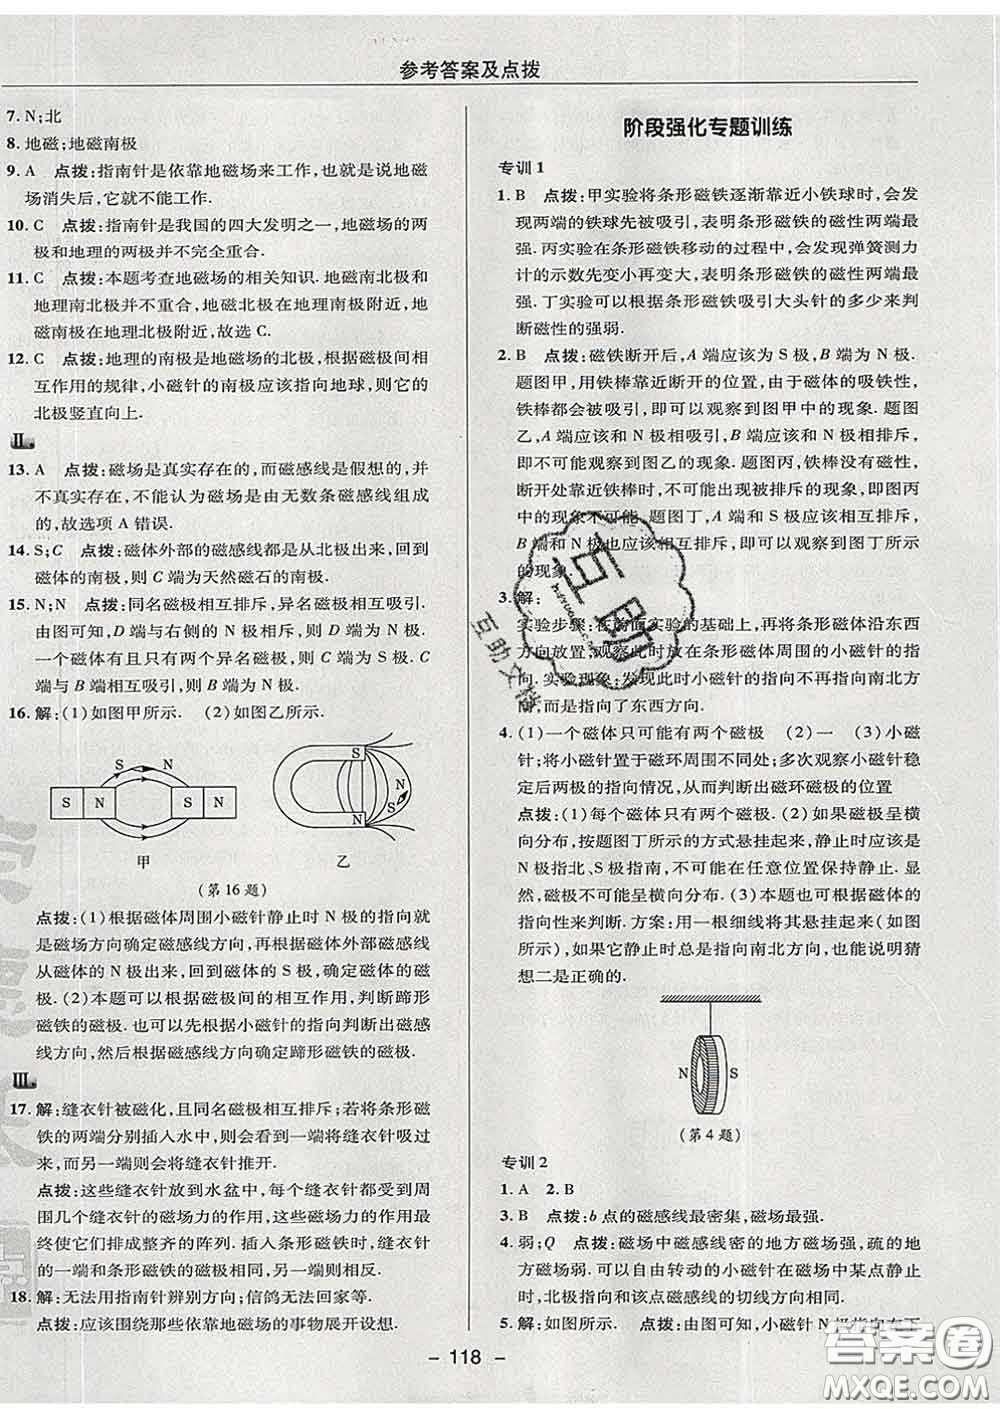 参考答案及点拨
7. N;北
8. 地磁;地磁南极
9. A 点拨:指南针是依靠地磁场来工作,当地磁
场消失后,它就不能工作.
10. C 点拨:指南针是我国的四大发明之一,地磁场的两
极和地理的两极并不完全重合.
11. C 点拨:本题考查地磁场的相关知识.地磁南北极和
地理南北极并不重合,地磁北极在地理南极附近,地
磁南极在地理北极附近,故选 C.
12. C 点拨:地理的南极是地磁场的北极,根据磁极间相
互作用的规律,小磁针的南极应该指向地球,则它的
北极竖直向上.
II.
13. A 点拨:磁场是真实存在的,而磁感线是假想的,并
不真实存在,不能认为磁场是由无数条磁感线组成
的,故选项 A 错误.
14. S;C 点拨:磁体外部的磁感线都是从北极出来,回到
磁体的南极,则 C 端为天然磁石的南极.
15. N;N 点拨:同名磁极相互排斥,异名磁极相互吸引.
由图可知,D 端与右侧的 N 极相互排斥,则 D 端为 N 极.
一个磁体有且只有两个异名磁极,则 C 端为 S 极.C
端与 B 端相互吸引,则 B 端为 N 极.
16. 解:(1)如图甲所示. (2)如图乙所示.
S N
S N S N
甲
S
N
N
乙
(第16题)
点拨:(1)根据磁体周围小磁针静止时 N 极的指向就
是磁场方向确定磁感线方向,再根据磁体外部磁感线
从磁体的 N 极出来,回到磁体的 S 极,确定磁体的磁
极.(2)本题可以根据磁极间的相互作用,判断蹄形
磁铁的磁极.也可以先根据小磁针的指向判断出磁感
线方向,然后根据磁感线方向确定蹄形磁铁的磁极.
III.
17. 解:缝衣针被磁化,且同名磁极相互排斥;若将条形磁
铁的两端分别插入水中,则会看到一端将缝衣针吸过
来,而另一端则会将缝衣针推开.
点拨:这些缝衣针放到水盆中,每个缝衣针都受到周
围几个缝衣针的磁场力的作用,这些磁场力的作用最
终使它们排成整齐的阵列.插入条形磁铁时,缝衣针
的一端和条形磁铁的磁极相吸引,另一端则相反.
18. 解:无法用指南针辨别方向;信鸽无法回家等.
点拨:应该围绕那些依靠地磁场的事物展开设想.
阶段强化专题训练
专训1
1. B 点拨:甲实验将条形磁铁逐渐靠近小铁球时,会发
现两端的铁球先被吸引,表明条形磁铁的磁性两端最
强.丙实验在条形磁铁移动的过程中,会发现弹簧测力
计的示数先变小再变大,表明条形磁铁的磁性两端最
强.丁实验可以根据条形磁铁吸引大头针的多少来判
断磁性的强弱.
2. B 点拨:磁铁断开后,A 端应该为 S 极,B 端为 N 极.
题图甲,用铁棒靠近断开的位置,由于磁体的吸铁性,
铁棒都会被吸引,可以观察到图甲中的现象.题图
乙,A 端应该和 N 极相吸引,B 端应该和 N 极相排斥,
即不可能观察到图乙的现象.题图丙,铁棒没有磁性,
断开处靠近铁棒时,不可能出现被排斥的现象,即图丙
中的现象不可能.题图丁,A 端和 S 极应该相互排斥,
B 端和 N 极也应该相互排斥,即可以观察到图丁所示
的现象.
3. 解:
实验步骤:在前面实验的基础上,再将条形磁体沿东西
方向放置,观察此时放在条形磁体周围的小磁针的指
向.实验现象:发现此时小磁针的指向不再指向南北方
向,而是指向了东西方向.
4. (1)一个磁体只可能有两个磁极 (2)一 (3)小磁
针;将小磁针置于磁环周围不同处;多次观察小磁针稳
定后两极的指向情况,从而判断出磁环磁极的位置
点拨:(1)每个磁体只有两个磁极.(2)如果磁极呈横
向分布,按题图丁所示的方式悬挂起来,静止时应该是
N 极指北、S 极指南,不可能在任意位置保持静止.因
此,磁极不可能呈横向分布.(3)本题可以根据磁体的
指向性来判断.方案:用一根细线将其悬挂起来(如图
所示),如果它静止时总是指向南北方向,也能说明猜
想二是正确的.
N S
(第4题)
专训2
1. A 2. B
3. B 点拨:b 点的磁感线最密集,磁场最强.
4. 弱;Q 点拨:磁场中磁感线密的地方磁场强,疏的地
方磁场弱.可以自由转动的小磁针在磁场中某点静止
时,北极指向和该点磁感线的切线方向相同.
5. 解:如图所示. 点拨:由图可知,小磁针 N 极指向右下
- 118 -
互助
互助文档
答案圈
MXQE.COM